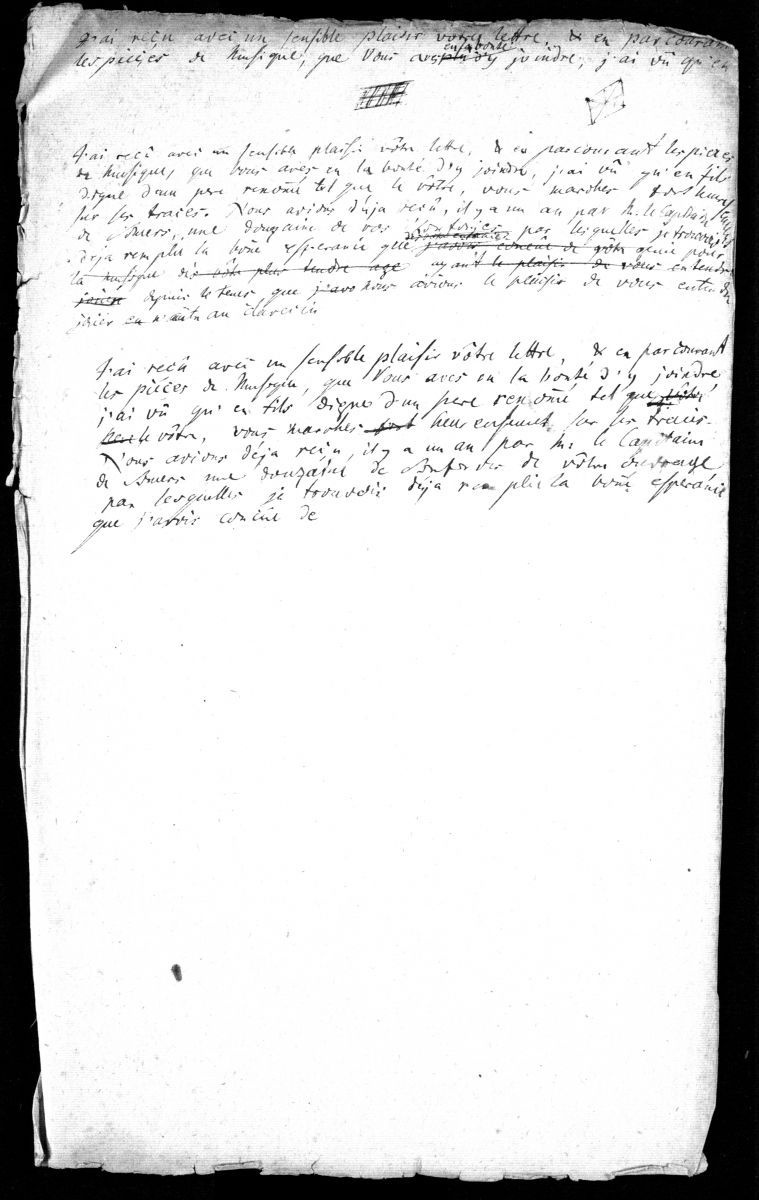 J'ai reçû avec un sensible plaisir votre lettre, & en parcourant
les pieçes de Musique, que Vous aves eu la bonté d'y joindre, j'ai vû qu'en
J'ai reçû avec un sensible plaisir vôtre lettre, & en parcourant les pieces
de Musique, que Vous aves eu la bonté d'y joindre, j'ai vû qu'en fils
digne d'un pere renomé tel que le vôtre, vous marches
sur ses traces. Nous avions deja reçû, il y a un an par M: le Capitaine
de Buers, une douzaine de vos par lesquelles je trouvois
deja remplir la bonne esperance que j'avois conçue de vôtre genie pour
la musique dès vôtre plus tendre age ayant le plaisir de vous entendre
jouer depuis le tems que j'avo nous avions le plaisir de vous entendre
joüer au clavecin
J'ai reçû avec un sensible plaisir vôtre lettre, & en parcourant
les pièces de Musique, que Vous aves eu la bonté d'y joindre
j'ai vû qu'en fils digne d'un pere renomé tel que
le vôtre, vous marches heureusement sur ses traces.
Nous avions déja reçu, il y a un an par M: le Capitaine
de Buers une douzaine de de vôtre ouvrage
par lesquelles je trouvois déja remplir la bonne esperance
que j'avois conçûe de